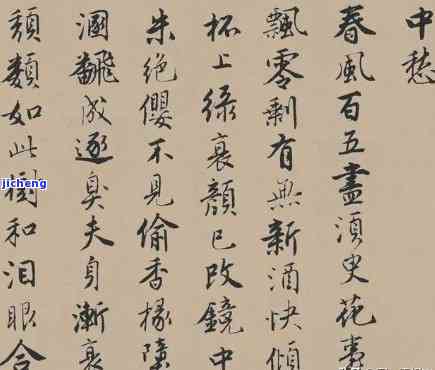 中愁
春風百五盡湏臾花事
飄零剩有無新酒快傾
杯上綠衰顏已改鏡中
朱絕纓不見偷香掾墮
溷飜成逐臭夫身漸衰
頹類如此樹和泪眼合
jicheng